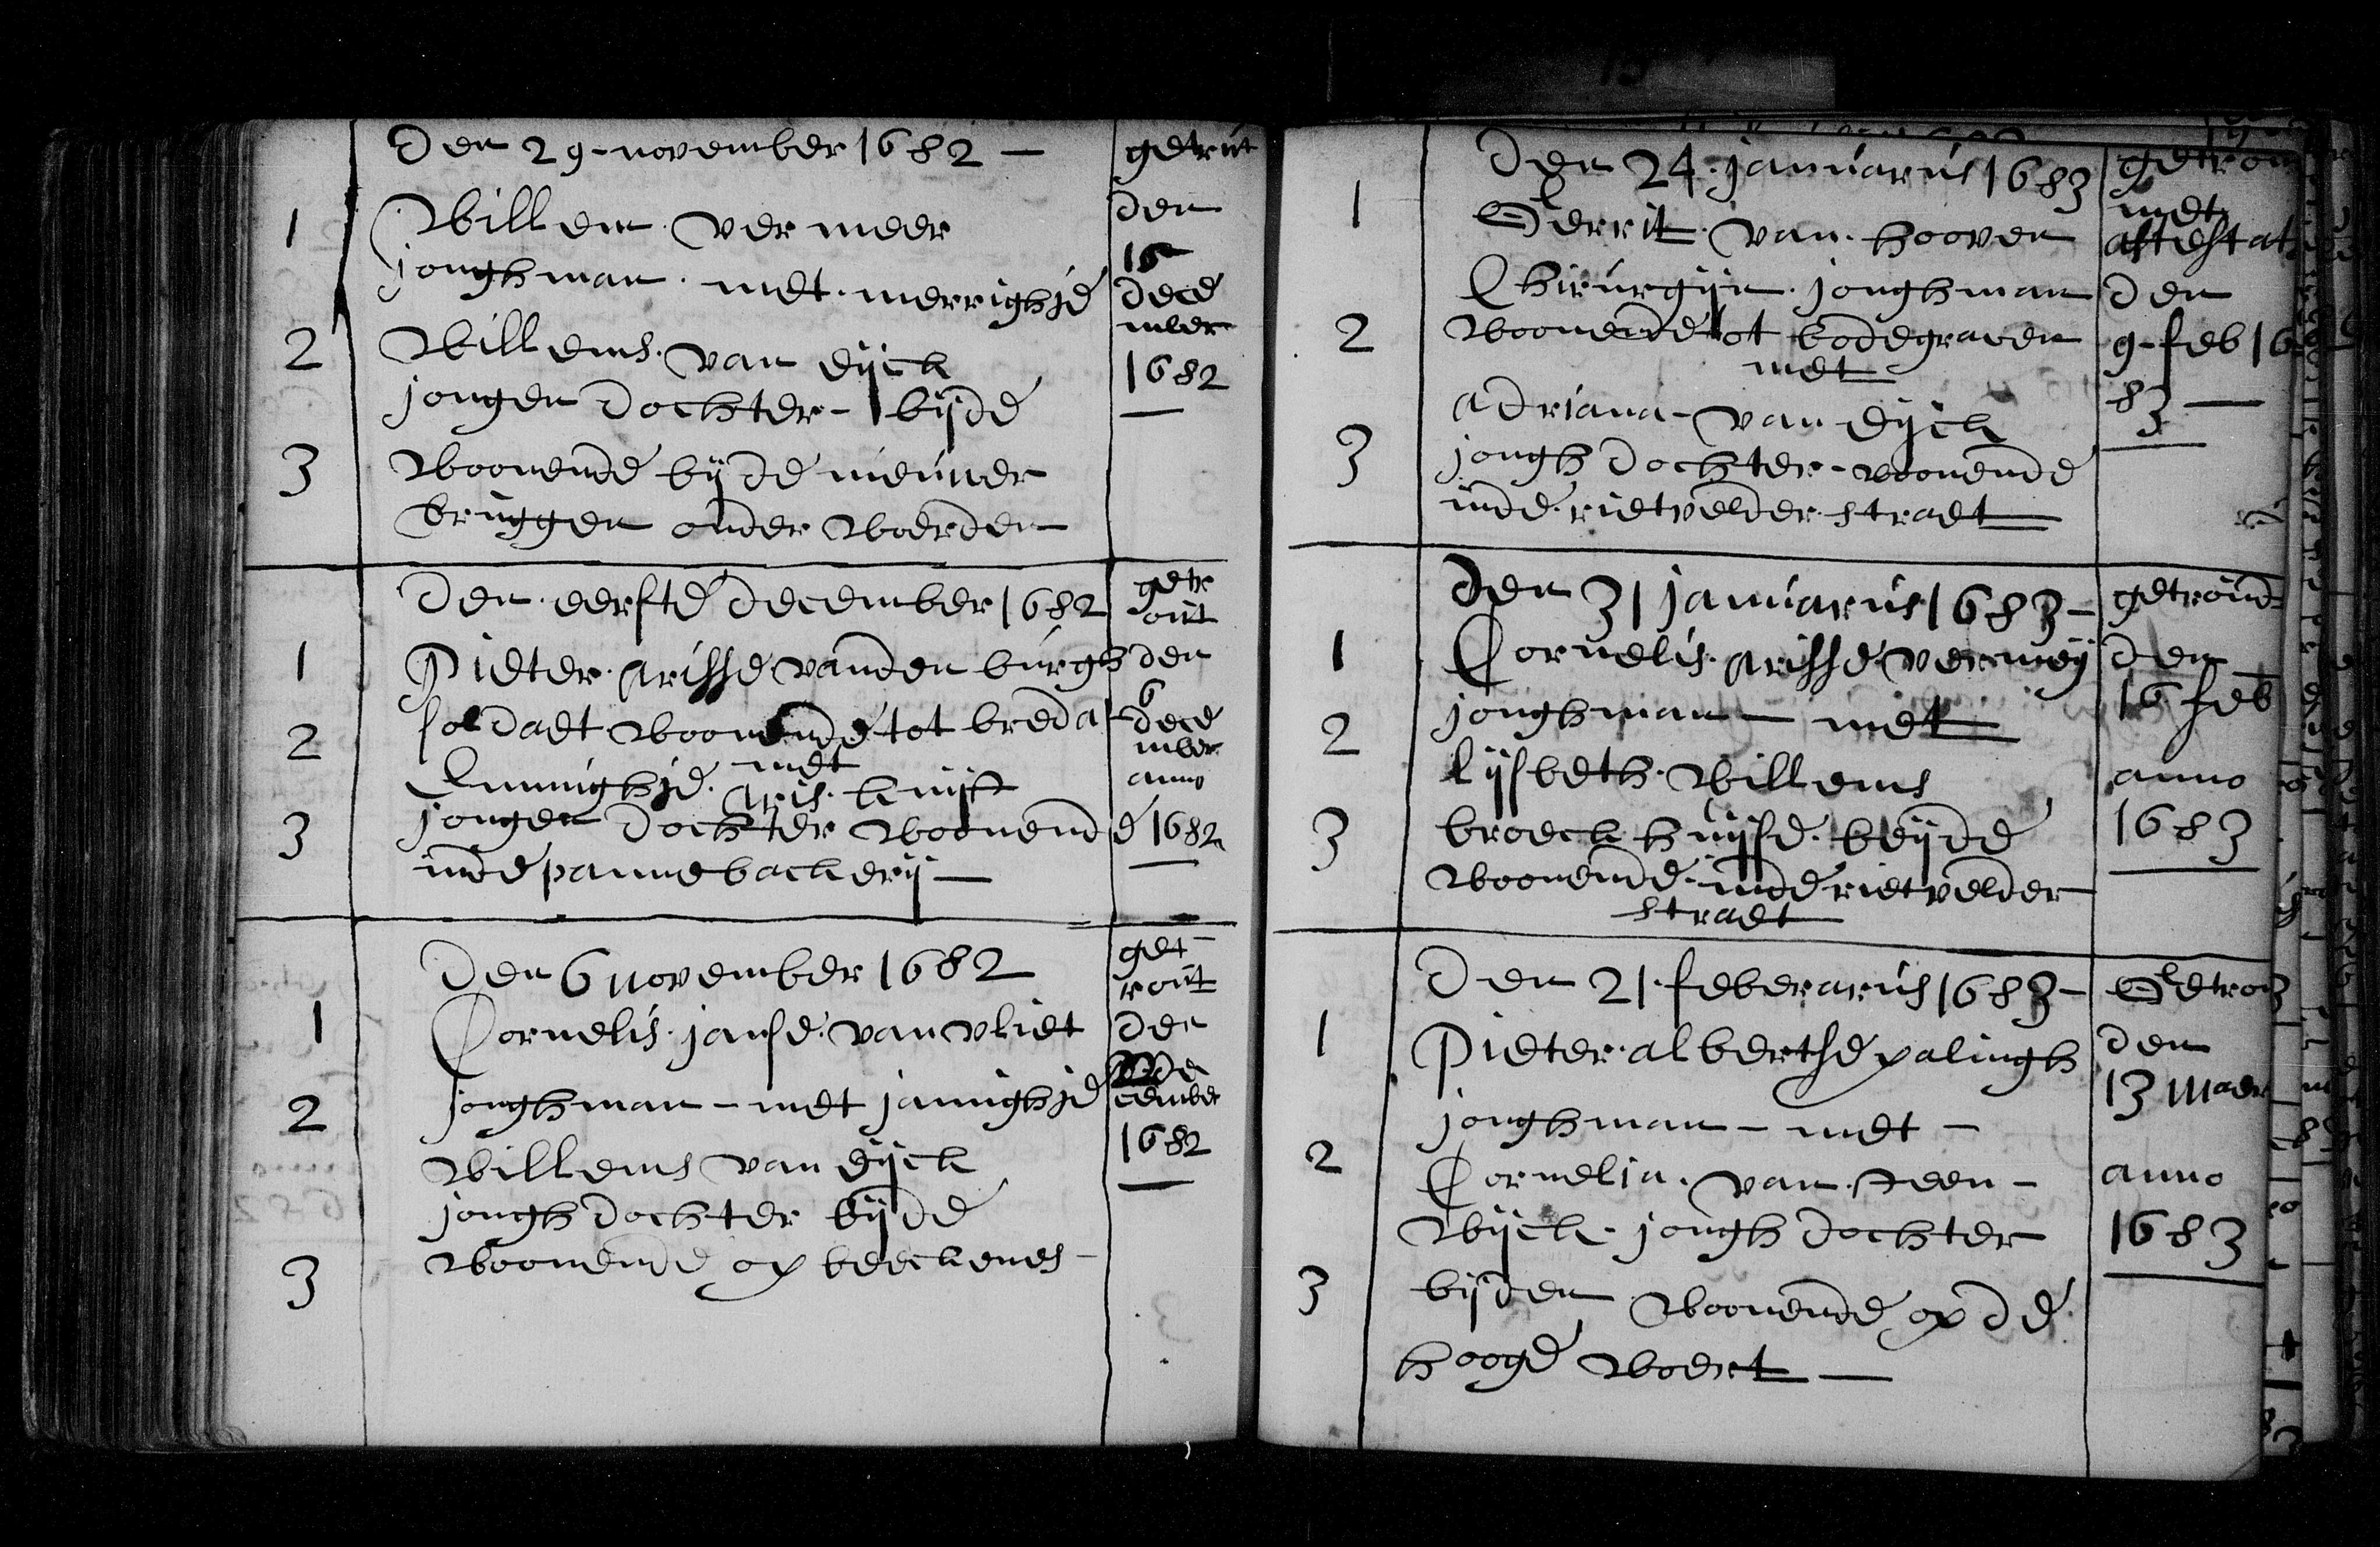 Den 29-november 1682 —
1 Willem vermeer
jonghman. met. merrighje
2 Willems. van dijck
jongen dochter - bijde
3 Woonende bij de nieuwer
bruggen onder Woerden
getrut
den
16
dece
mber
1682
Den. eerste december 1682
1 Pieter. arisse vanden burgh
2 soldaet Woonende tot breda
met
Annighje. aris. kuijf
3 jongen dochter Woonende
inde pannebackerij —
getr
out
den
6
dece
mber
anno
1682
Den 6 november 1682
1 Cornelis. janse. van vliet
2 jonghman - met jannighje
Willems van dijck
jongh dochter bijde
3 Woonende op beeckenes -
get-
rout
den
de
cember
1682
Den 24. januarus 1683
1 Gerrit. van. hooven
Chirurgijn. jonghman
2 Woonende tot bodegraven
met
adriana - van dijck
3 jongh dochter - woonende
inde. rietvelder. straet
getrou
met
attestat
den
9-feb 16
83 —
Den 31 januarus 1683 -
1 Cornelis. arisse. vermeij
2 jonghman — met
lijsbeth. Willems
3 broeck huijse. beijde
Woonende. inde rietvelder
straet
getroud
den
16 feb
anno
1683
Den 21. feberarus 1683 -
1 Pieter. albertse palingh
jonghman - met -
2 Cornelia. van. steen -
Wijck. jongh dochter
3 bijden Woonende op de
hooge Woert —
Getrou
den
13 Maer
anno
1683